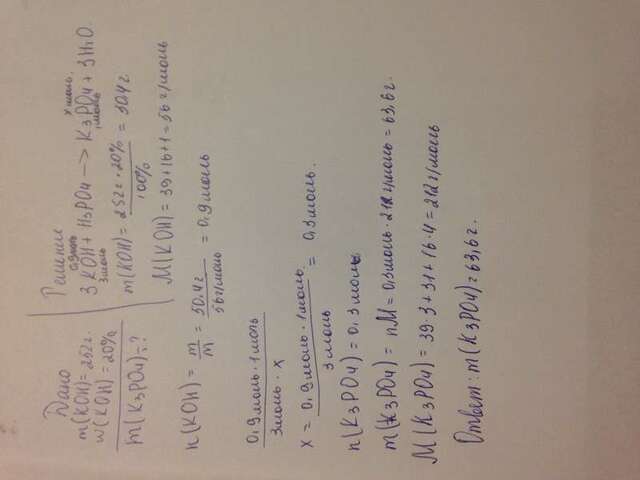 Дано
m(KOH)=252г.
w(KOH)=20%
m(K3PO4)-?
Решение
0,9моль x моль.
3KOH + H3PO4 → K3PO4 + 3H2O.
3моль 1моль
m(KOH) = 252г · 20% / 100% = 50,4г
M(KOH) = 39+16+1=56г/моль
n(KOH) = m/M = 50.4г / 56г/моль = 0,9моль
0,9моль · 1моль
3моль · x
x = 0,9моль · 1моль / 3моль = 0,3моль.
n(K3PO4)=0,3моль
m(K3PO4) = nM = 0,3моль · 212г/моль = 63,6г.
M(K3PO4) = 39·3+31+16·4=212г/моль
Ответ: m(K3PO4)=63,6г.